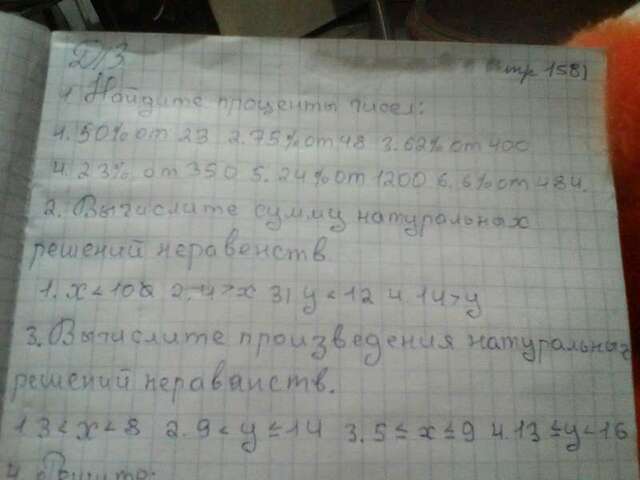 Д/З стр 158)
1. Найдите проценты чисел:
1. 50% от 23 2. 75% от 48 3. 62% от 400
4. 23% от 350 5. 24% от 1200 6. 6% от 484.
2. Вычислите сумму натуральных
решений неравенств
1. x < 10 2. 4 > x 3) y < 12 4. 14 > y
3. Вычислите произведения натуральных
решений нераванств.
1 3 < x < 8 2. 9 < y ≤ 14 3. 5 ≤ x ≤ 9 4. 13 ≤ y < 16
4. Решите: